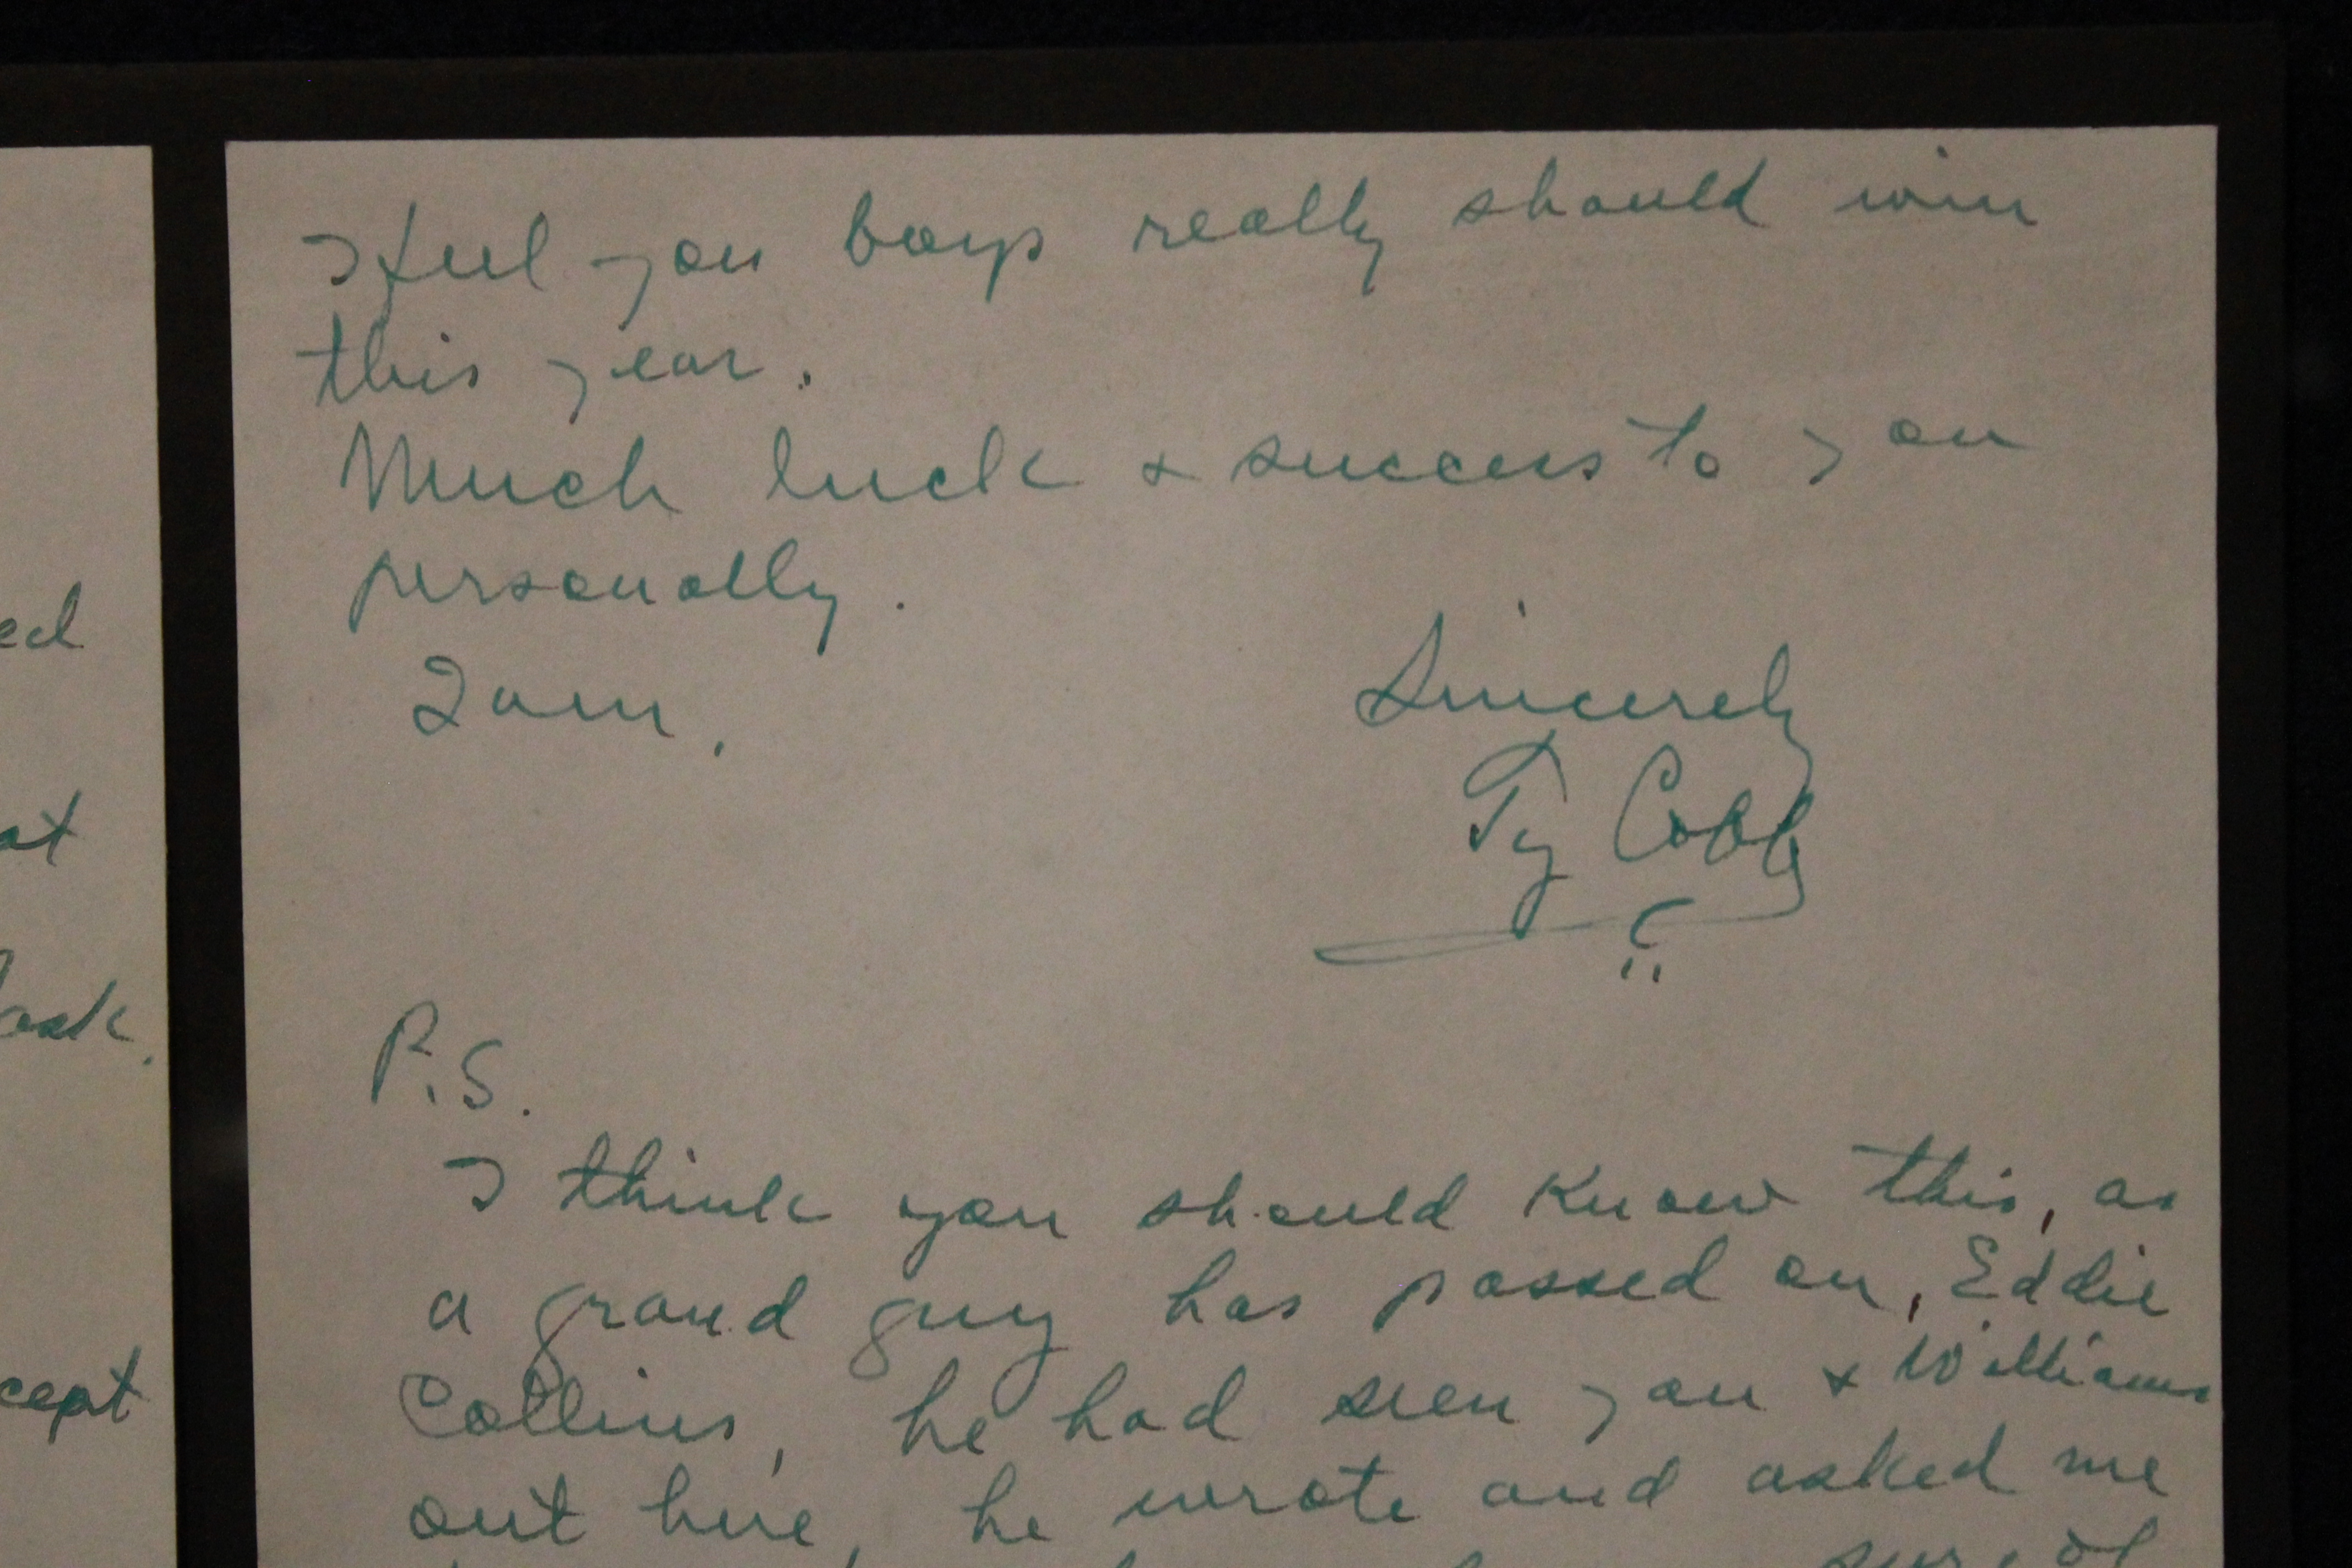 ed
at
ask.
cept
I feel you boys really should win
this year.
Much luck & success to you
personally.
I am,
Sincerely
Ty Cobb
P.S.
I think you should know this, as
a grand guy has passed on, Eddie
Collins, he had seen you & Williams
out here, he wrote and asked me